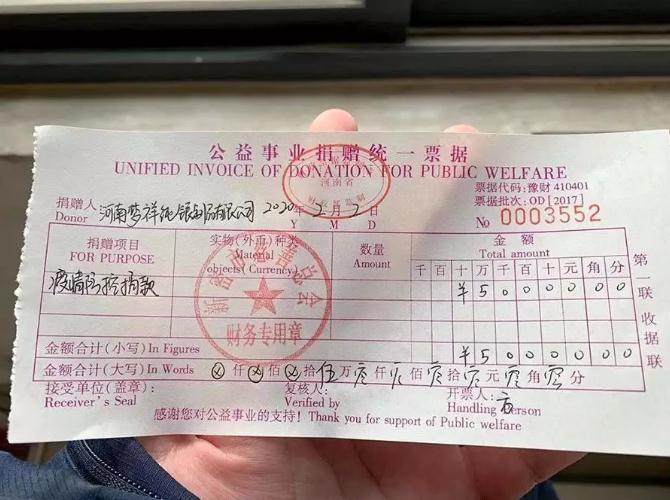 公益事业捐赠统一票据
UNIFIED INVOICE OF DONATION FOR PUBLIC WELFARE
河南省
票据代码:豫财 410401
票据批次:OD[2017]
捐赠人 河南梦祥纯银制品有限公司 2020 年 2 月 2 日
Donor Y M D
№ 0003552
捐赠项目 实物(外币)种类 数量 金额
FOR PURPOSE Material objects(Currency) Amount Total amount
千 百 十 万 千 百 十 元 角 分
疫情防控捐款 ¥ 5 0 0 0 0 0 0
新密 总会
财务专用章
金额合计(小写)In Figures ¥ 5 0 0 0 0 0 0
金额合计(大写)In Words ⊗ 仟 ⊗ 佰 ⊗ 拾 伍 万 零 仟 零 佰 零 拾 零 元 零 角 零 分
接受单位(盖章): 复核人: 开票人:
Receiver's Seal Verified by Handling Person
感谢您对公益事业的支持! Thank you for support of Public welfare
第一联 收据联